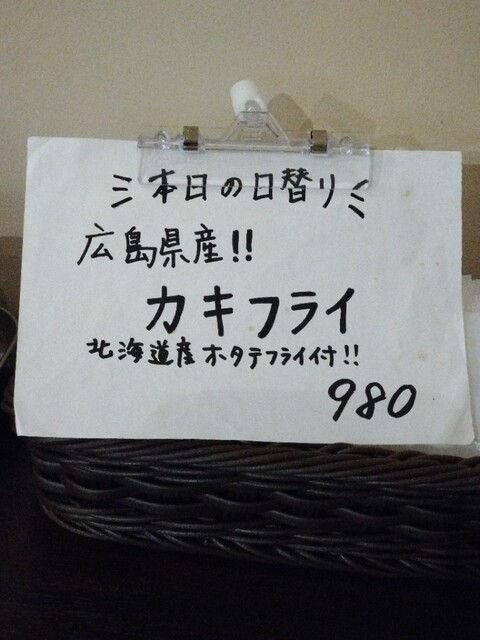 本日の日替り
広島県産!!
カキフライ
北海道産ホタテフライ付!!
980